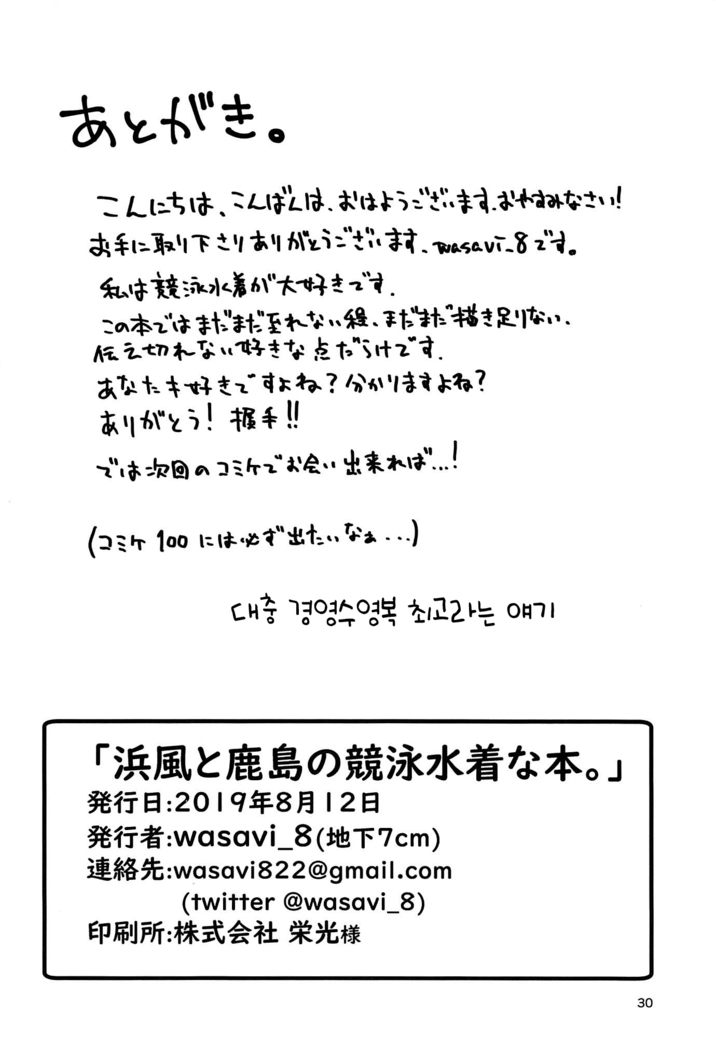 あとがき。
こんにちは、こんばんは、おはようございます、おやすみなさい!
お手に取り下さりありがとうございます、wasavi_8です。
私は競泳水着が大好きです.
この本ではまだまだ至れない程、まだまだ描き足りない、
伝え切れない好きな点だらけです.
あなたも好きですよね?分かりますよね?
ありがとう! 握手!!
では次回のコミケでお会い出来れば...!
(コミケ 100 には必ず出たいなぁ...)
대충 경영수영복 최고라는 얘기
「浜風と鹿島の競泳水着な本。」
発行日:2019年8月12日
発行者:wasavi_8(地下7cm)
連絡先:wasavi822@gmail.com
(twitter @wasavi_8)
印刷所:株式会社 栄光様
30